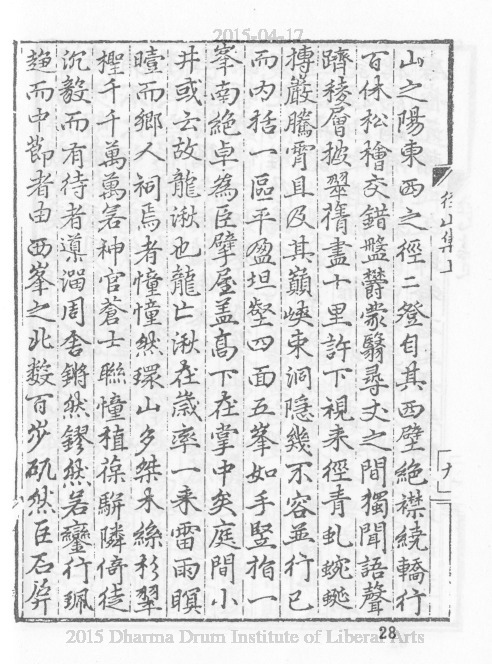 2015-04-17
徑山集上
九
山之陽東西之徑二登自其西壁絕襟繞轎行
百休松檜交錯盤欝蒙翳尋丈之間獨聞語聲
躋稜層披翠蒨盡十里許下視来徑青虬蜿蜒
摶巖騰霄且及其巔峽束洞隱幾不容並行已
而内括一區平盈坦壑四面五峯如手竪指一
峯南絕卓為臣擘屋盖高下在掌中矣庭間小
井或云故龍湫也龍亡湫在歲率一来雷雨暝
曀而鄉人祠焉者憧憧然環山多桀木絲杉翠
檉千千萬萬若神官蒼士聯幢植葆駢隣倚徒
沉毅而有待者凛溜周舍鏘然鏐然若鑾行珮
趍而中節者由西峯之北数百步矶然巨石屏
28
2015 Dharma Drum Institute of Liberal Arts